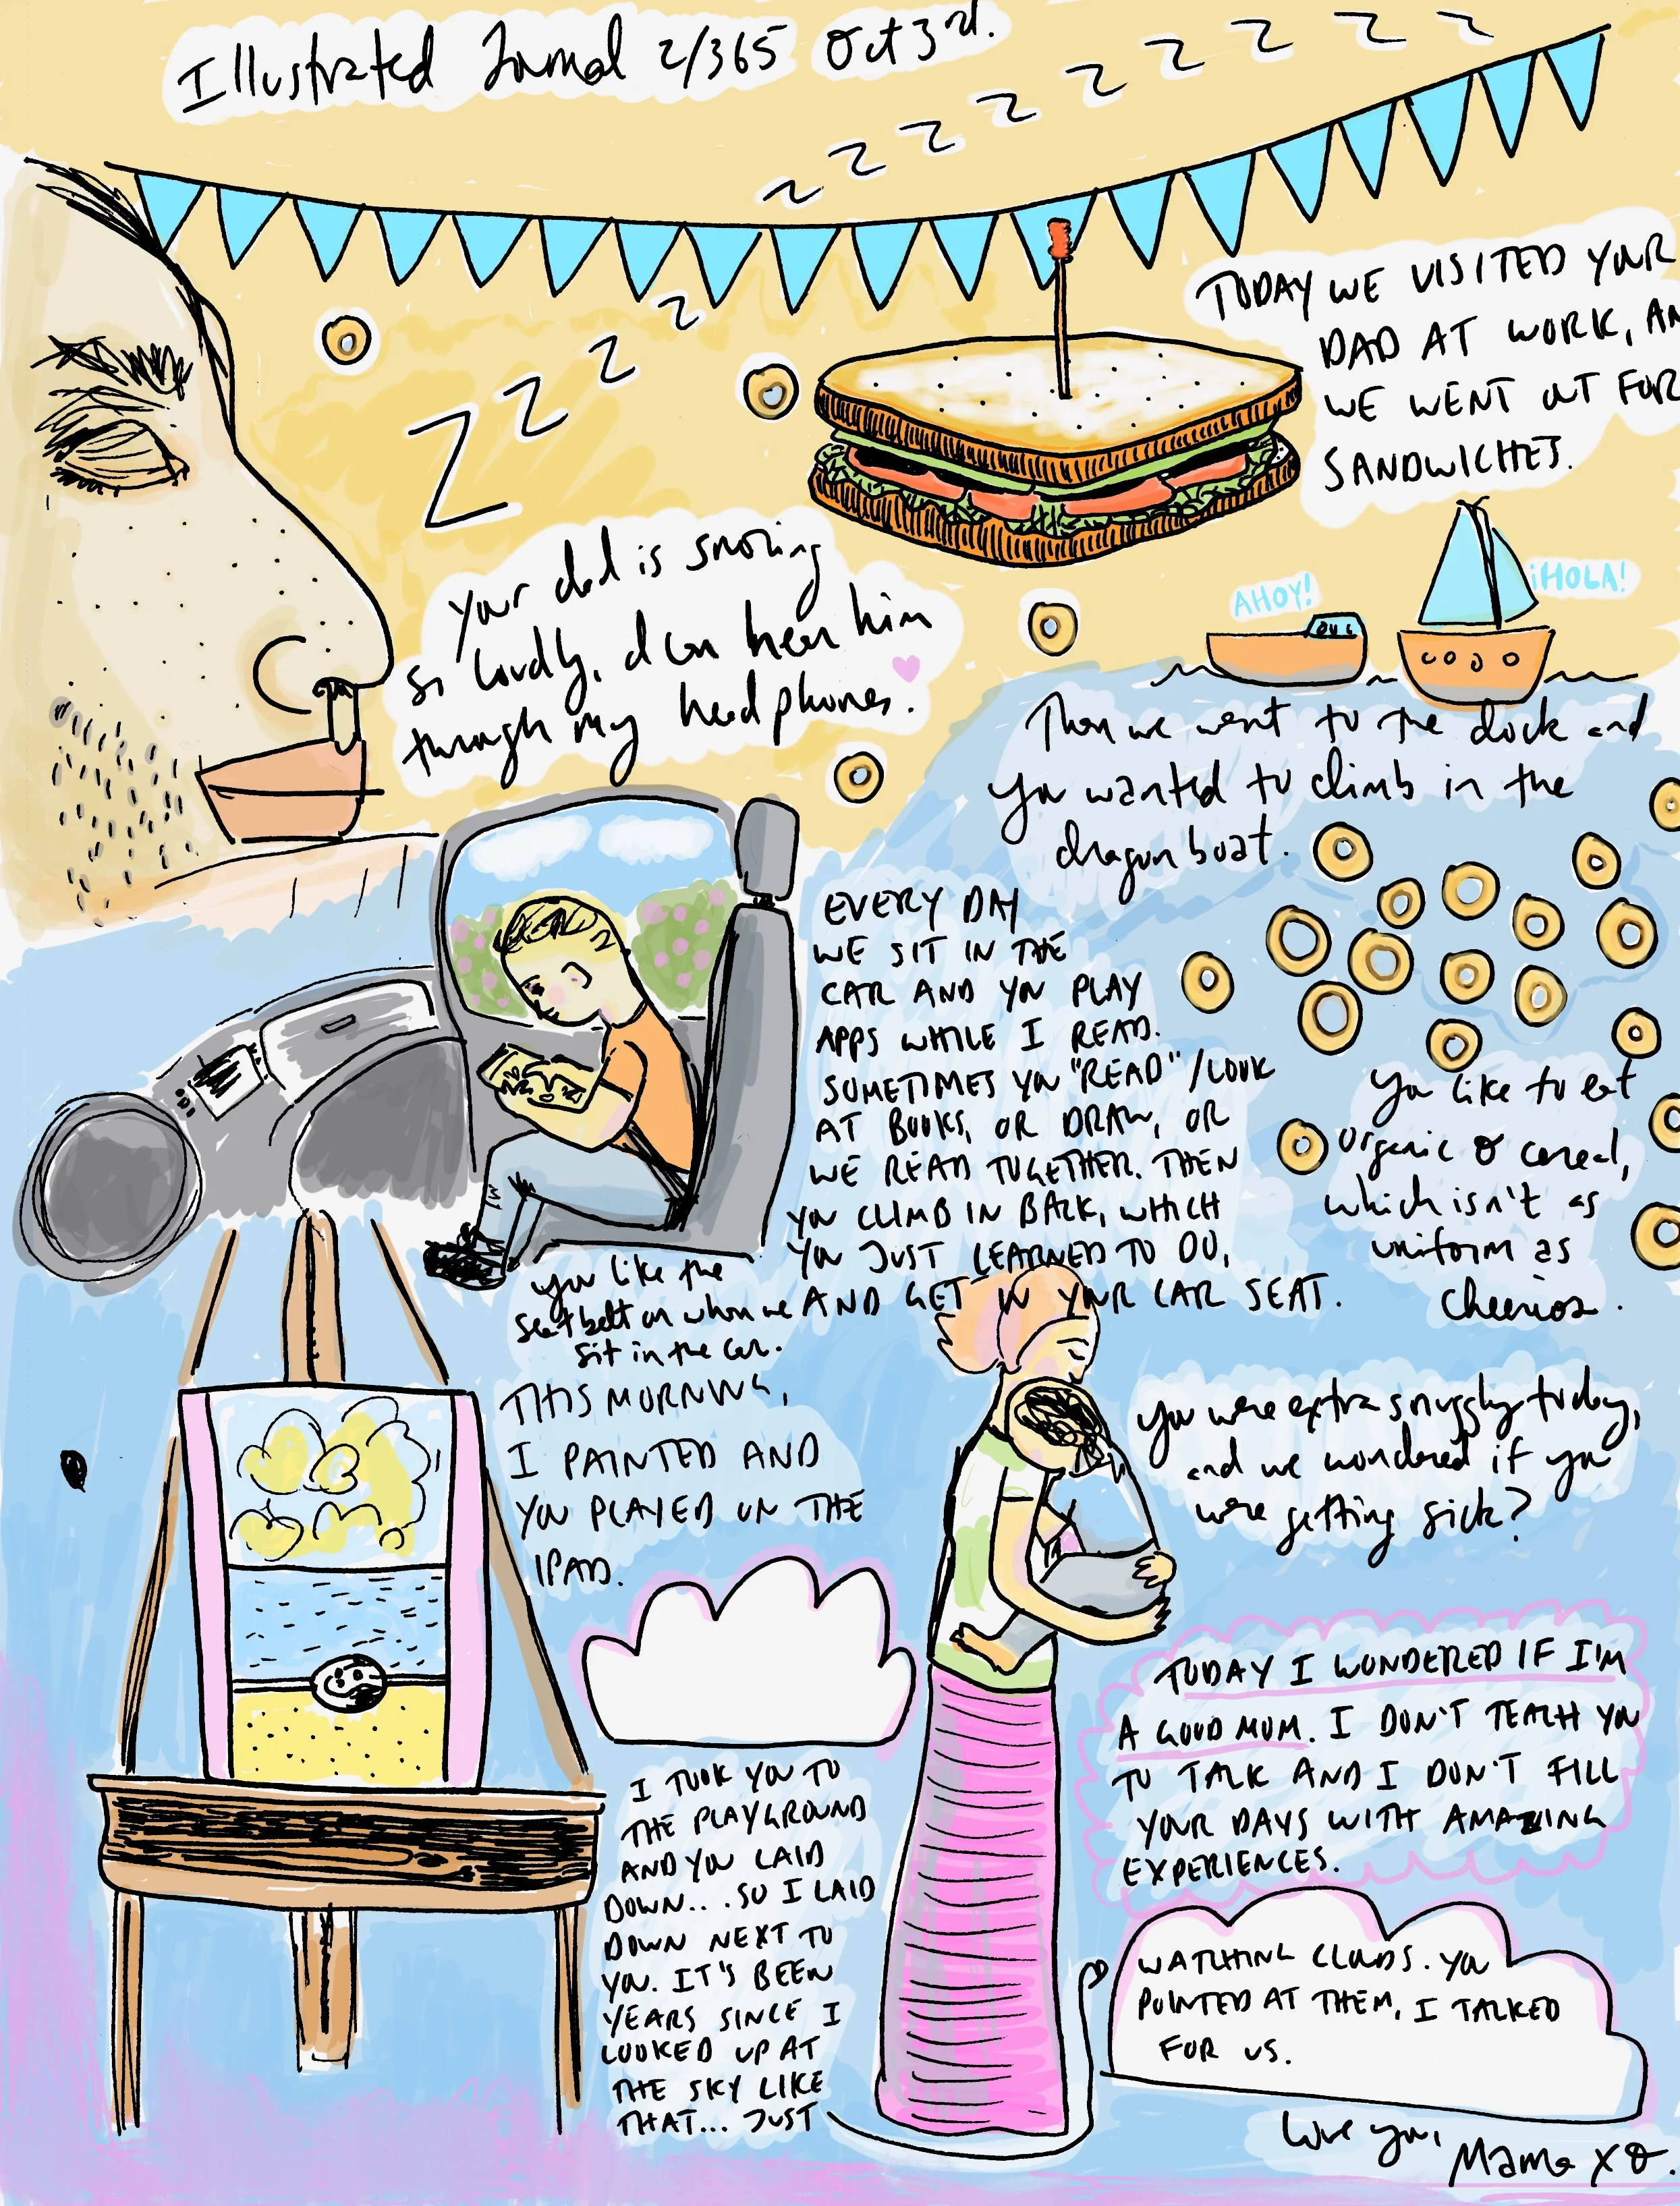 Illustrated Journal 2/365 Oct 3rd.
Z Z Z Z Z Z Z Z Z Z
Z Z Z Z
TODAY WE VISITED YOUR
DAD AT WORK, AN
WE WENT OUT FOR
SANDWICHES.
your dad is snoring
so loudly, I can hear him
through my headphones.
AHOY!
¡HOLA!
Then we went to the dock and
you wanted to climb in the
dragon boat.
EVERY DAY
WE SIT IN THE
CAR AND YOU PLAY
APPS WHILE I READ.
SOMETIMES YOU "READ"/LOOK
AT BOOKS, OR DRAW, OR
WE READ TOGETHER. THEN
YOU CLIMB IN BACK, WHICH
YOU JUST LEARNED TO DO,
AND GET IN YOUR CAR SEAT.
You like to eat
organic O cereal,
which isn't as
uniform as
Cheerios.
you like the
seatbelt on when we
sit in the car.
THIS MORNING,
I PAINTED AND
YOU PLAYED ON THE
IPAD.
you were extra snuggly today,
and we wondered if you
were getting sick?
TODAY I WONDERED IF I'M
A GOOD MUM. I DON'T TEACH YOU
TO TALK AND I DON'T FILL
YOUR DAYS WITH AMAZING
EXPERIENCES.
I TOOK YOU TO
THE PLAYGROUND
AND YOU LAID
DOWN... SO I LAID
DOWN NEXT TO
YOU. IT'S BEEN
YEARS SINCE I
LOOKED UP AT
THE SKY LIKE
THAT... JUST
WATCHING CLOUDS. YOU
POINTED AT THEM, I TALKED
FOR US.
Love you,
Mama XO.